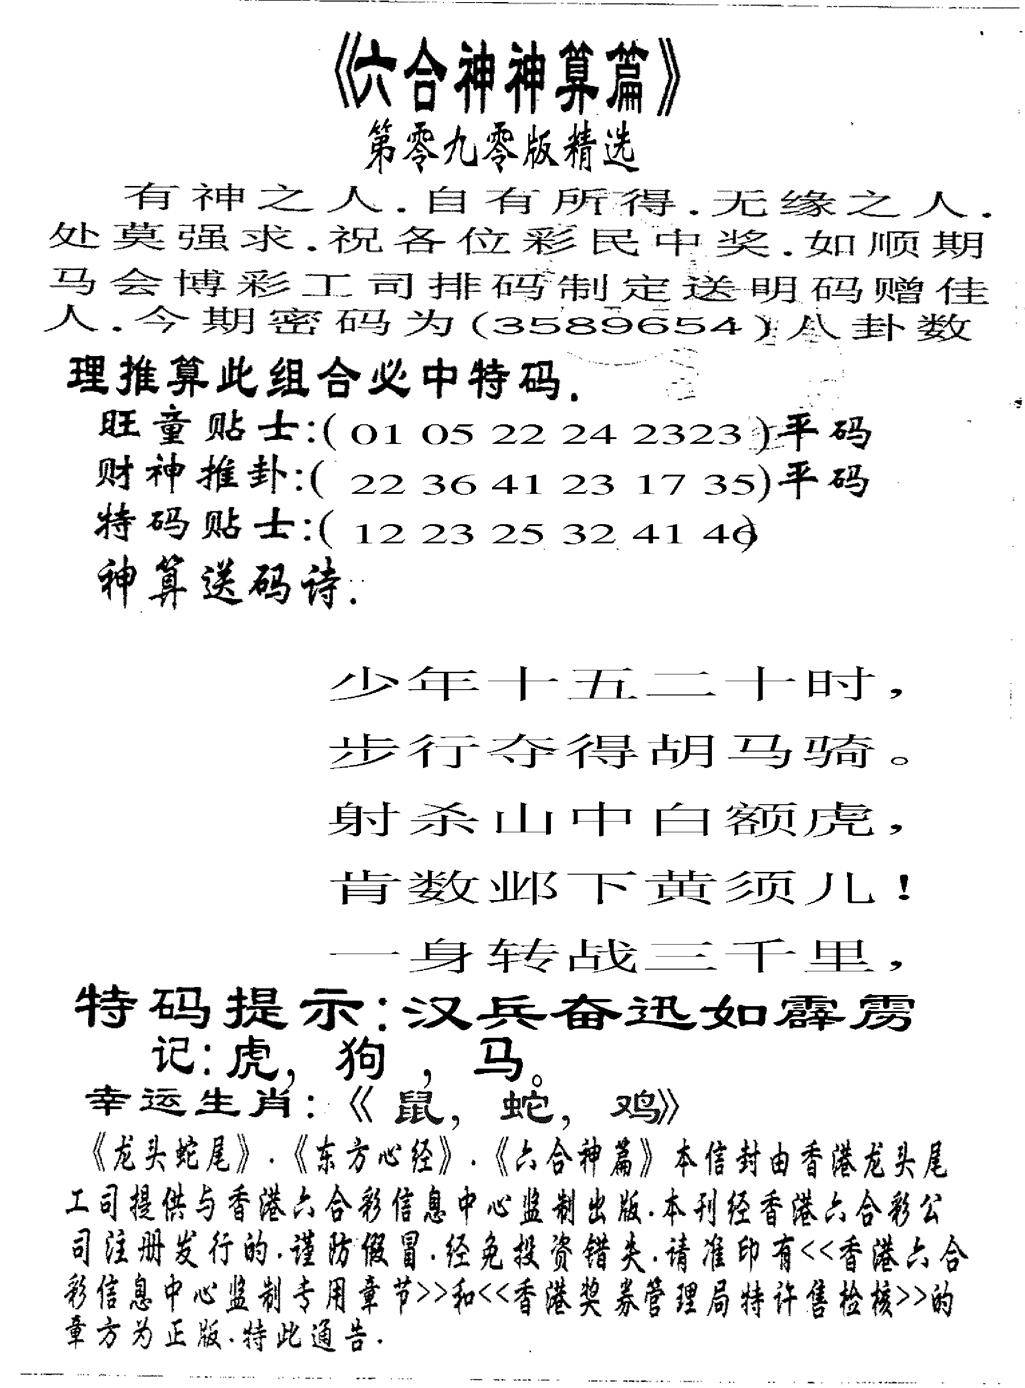 《六合神神算篇》
第零九零版精选
有神之人.自有所得.无缘之人.
处莫强求.祝各位彩民中奖.如顺期
马会博彩工司排码制定送明码赠佳
人.今期密码为(3589654)八卦数
理推算此组合必中特码.
旺童贴士:( 01 05 22 24 2323 )平码
财神推卦:( 22 36 41 23 17 35)平码
特码贴士:( 12 23 25 32 41 46)
神算送码诗.
少年十五二十时，
步行夺得胡马骑。
射杀山中白额虎，
肯数邺下黄须儿！
一身转战三千里，
特码提示:汉兵奋迅如霹雳
记:虎，狗，马。
幸运生肖:《鼠，蛇，鸡》
《龙头蛇尾》.《东方心经》.《六合神篇》本信封由香港龙头尾
工司提供与香港六合彩信息中心监制出版.本刊经香港六合彩公
司注册发行的.谨防假冒.经免投资错失.请准印有<<香港六合
彩信息中心监制专用章节>>和<<香港奖券管理局特许售检核>>的
章方为正版.特此通告.